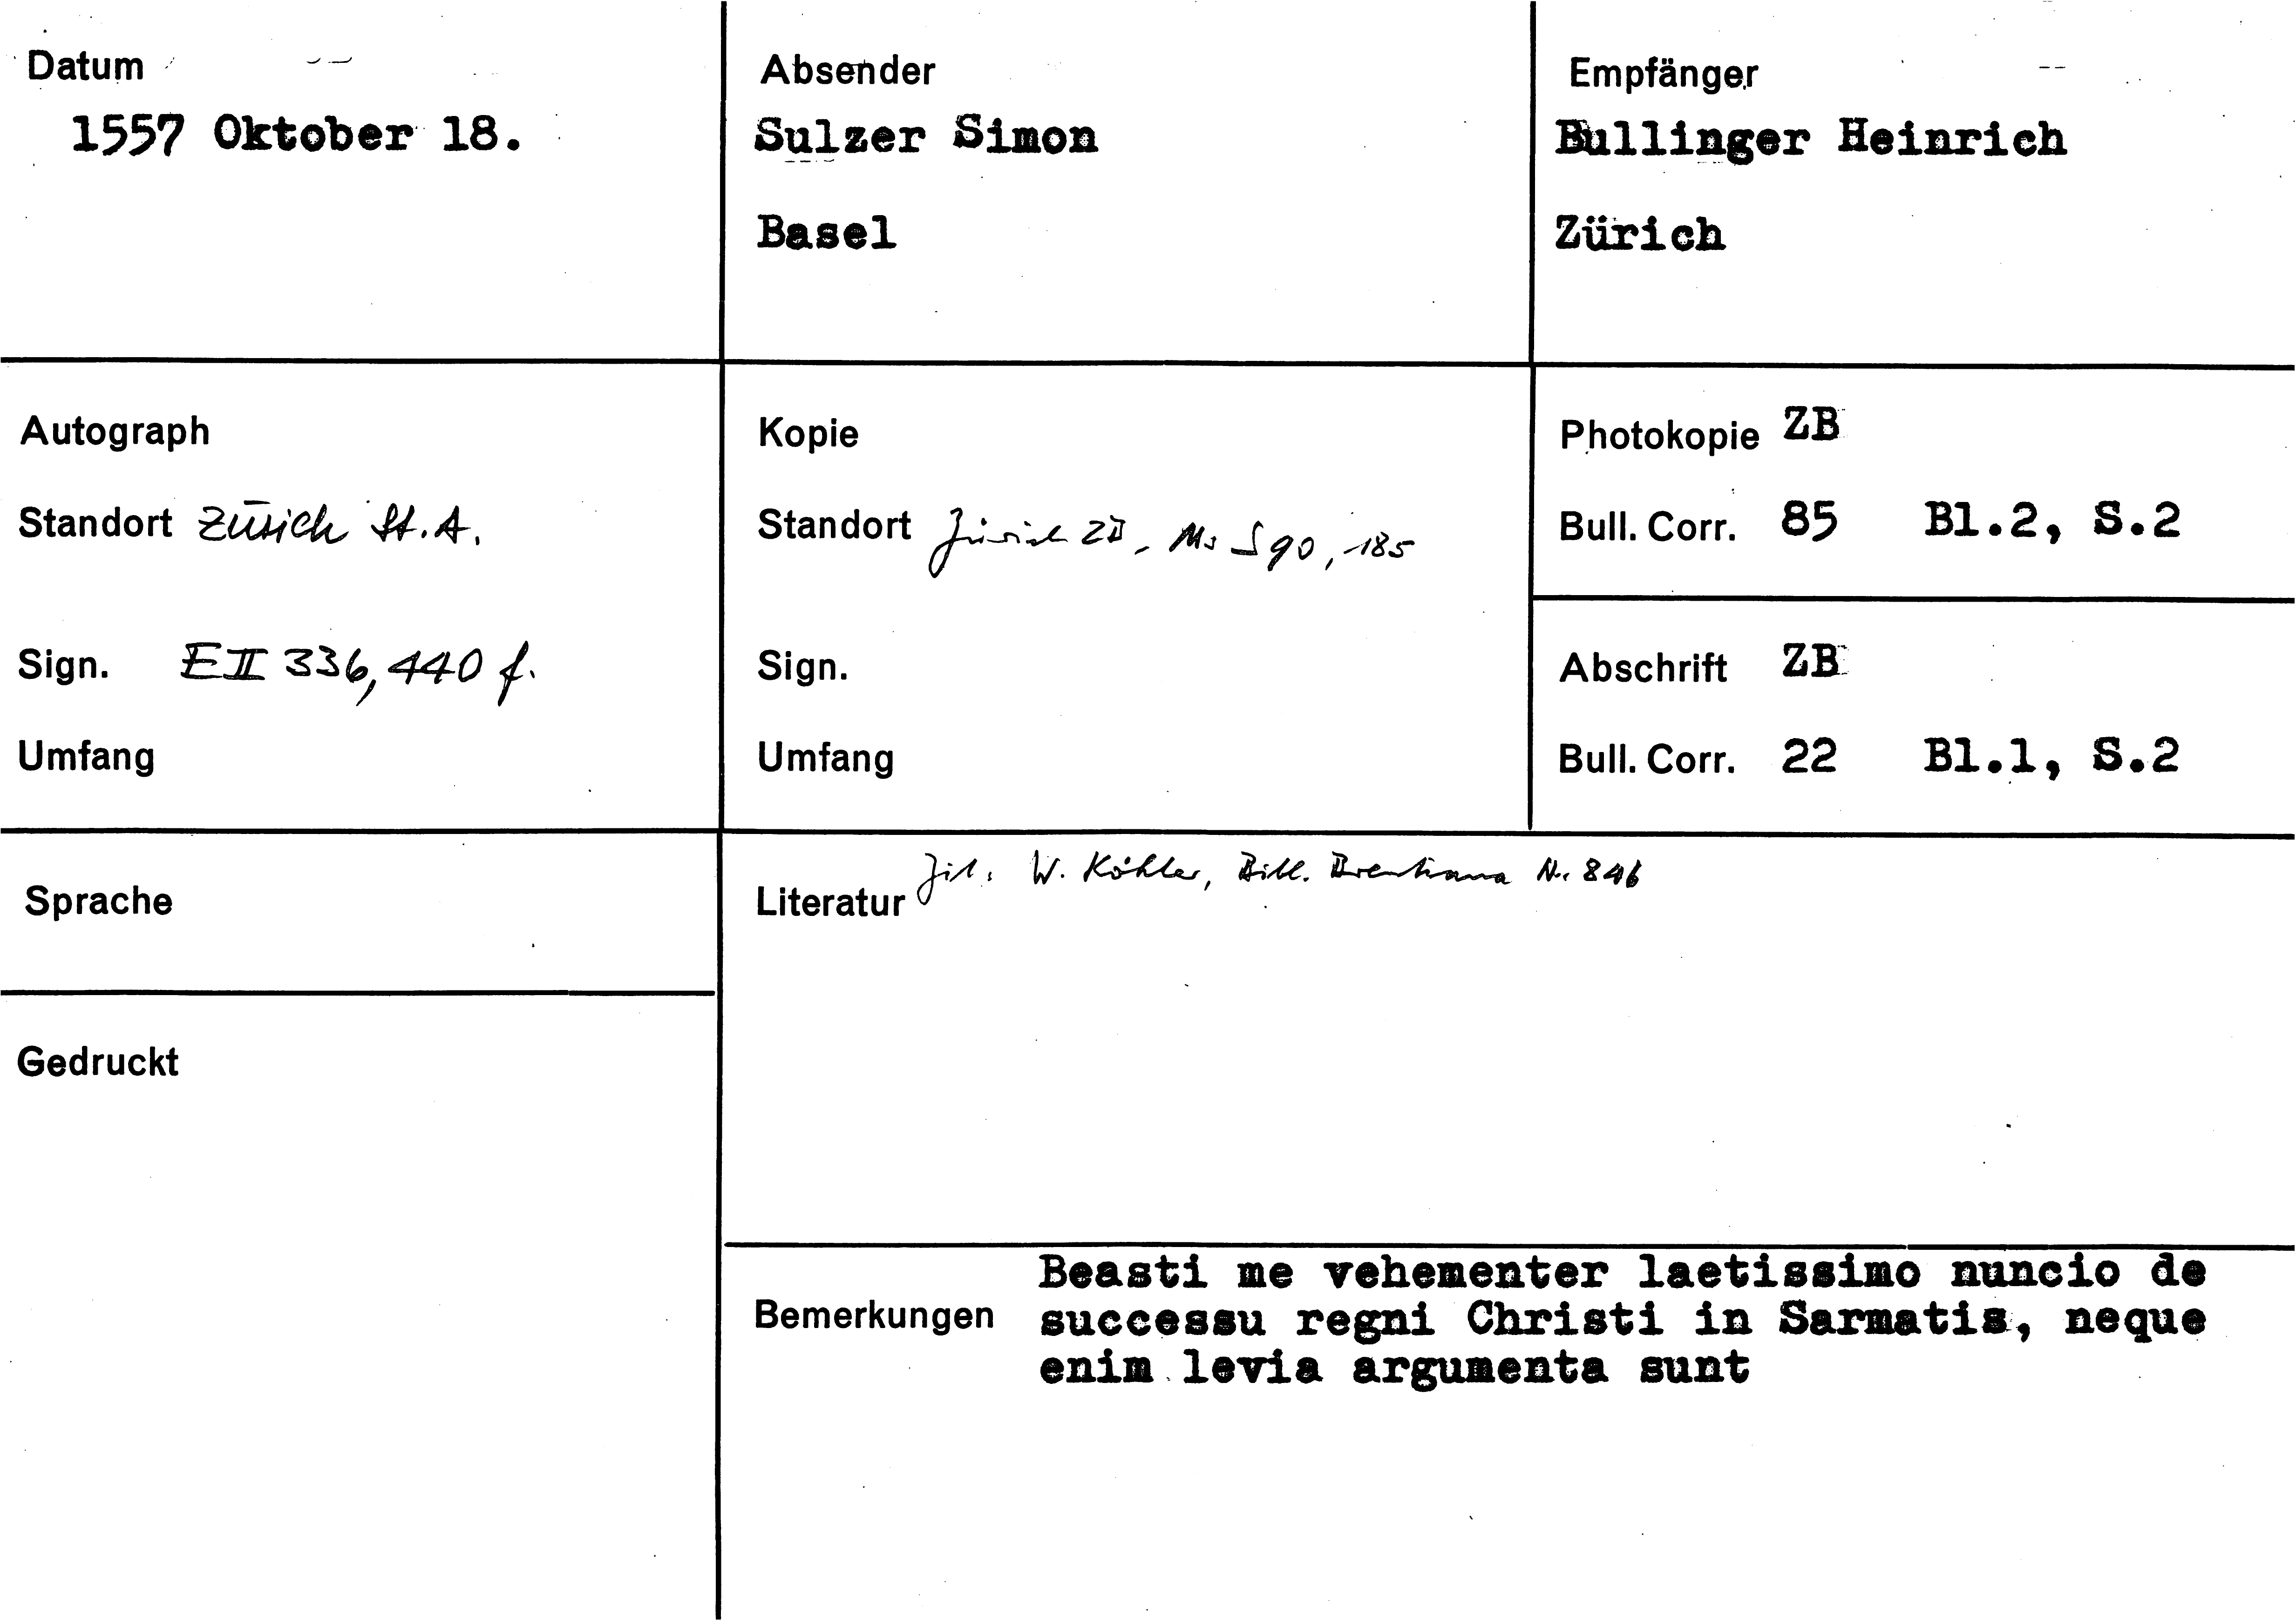 Datum
1557 Oktober 18.
Absender
Sulzer Simon
Basel
Empfänger
Bullinger Heinrich
Zürich
Autograph
Standort Zürich St.A.
Sign. E II 336, 440 f.
Umfang
Kopie
Standort Zürich ZB, Ms S 90, 185
Sign.
Umfang
Photokopie ZB
Bull. Corr. 85 Bl.2, S.2
Abschrift ZB
Bull. Corr. 22 Bl.1, S.2
Sprache
Gedruckt
Literatur Zit. W. Köhler, Bibl. Brentiana Nr. 846
Bemerkungen
Beasti me vehementer laetissimo nuncio de
successu regni Christi in Sarmatis, neque
enim levia argumenta sunt